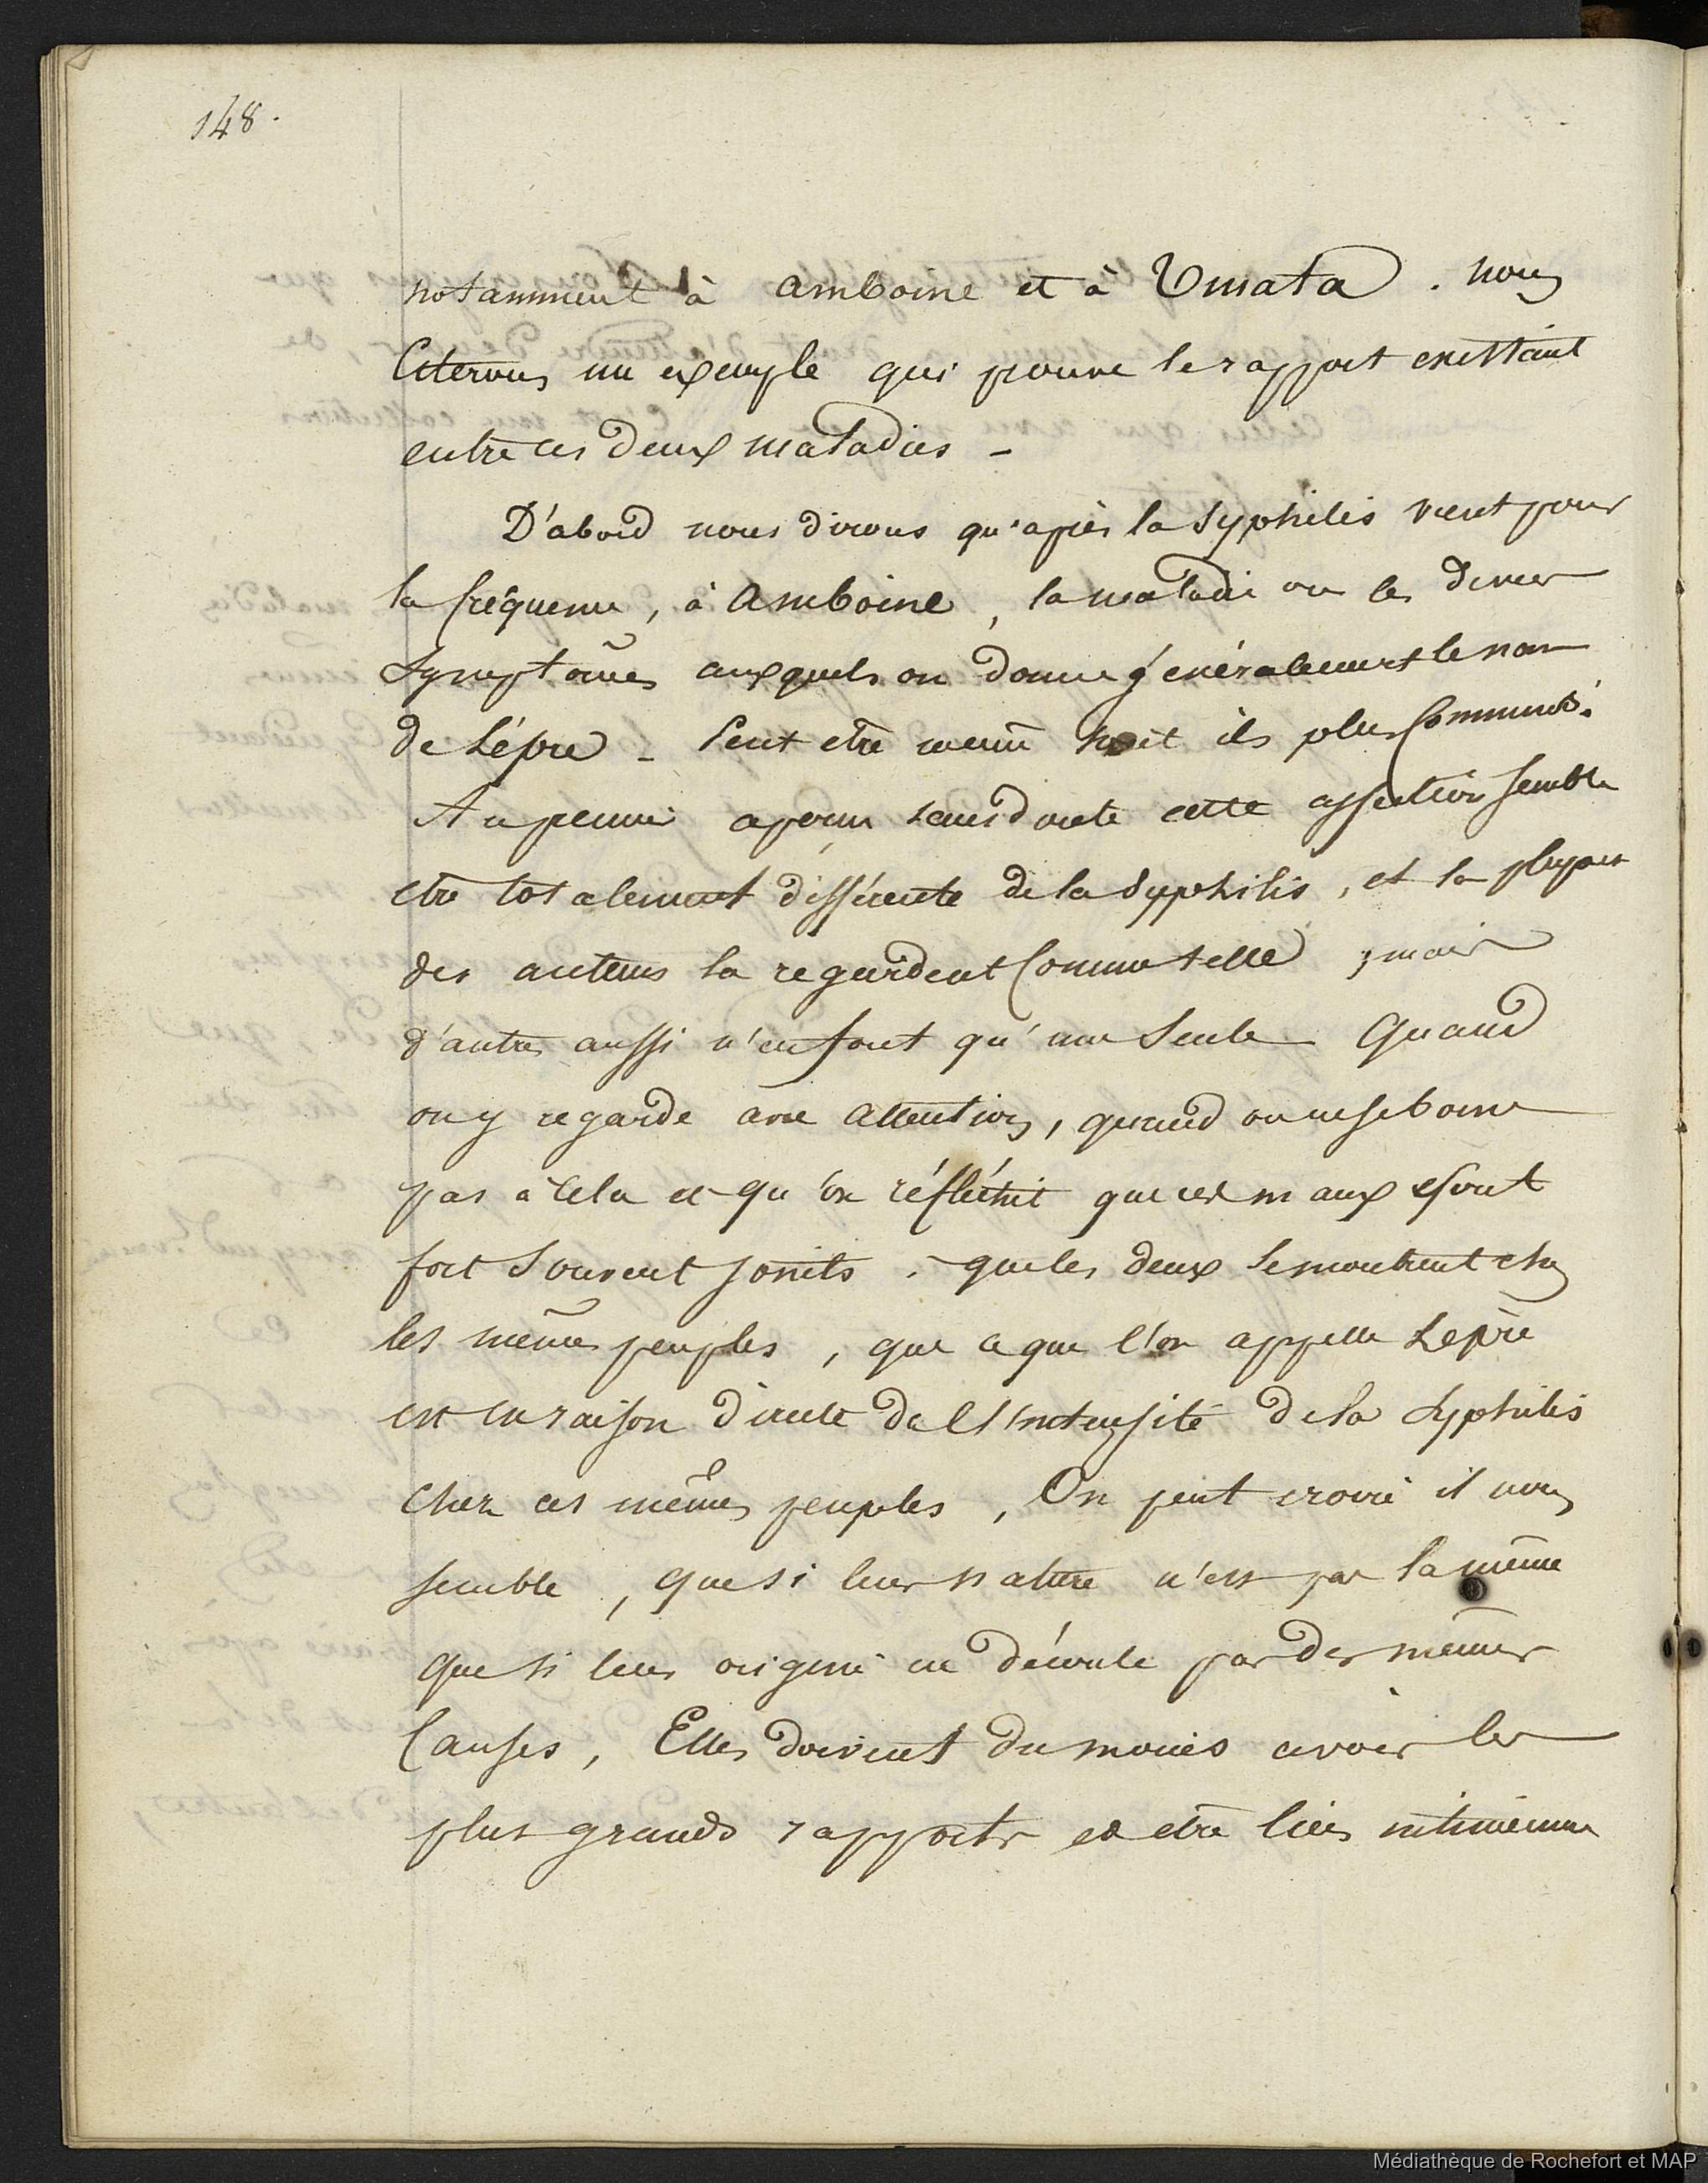 148.
notamment à amboine et à Umata. nous
Citerons un exemple qui prouve le rapport existant
entre ces deux maladies -
D'abord nous dirons qu'après la Syphilis vient pour
la fréquence, à Amboine, la maladie ou les divers
Symptômes auxquels on donne généralement le nom
de Lépre - Peut etre meme sont ils plus Communs.
Au premier apercu sans doute cette affection semble
etre totalement différente de la Syphilis, et la plupart
des auteurs la regardent Comme telle ; mais
d'autres aussi n'en font qu'une Seule - Quand
on y regarde avec attention, quand on ne se borne
pas à Cela et qu'on réfléchit que ces maux sont
fort Souvent joints, que les deux se montrent chez
les mêmes peuples, que ce que l'on appelle Lepre
est en raison directe de l'intensité de la Syphilis
Chez ces mêmes peuples, On peut croire il nous
semble, que si leur nature n'est pas la même
que si leur origine ne découle pas des mêmes
Causes, Elles doivent du moins avoir les
plus grands rapports et etre liées intimement
Médiathèque de Rochefort et MAP